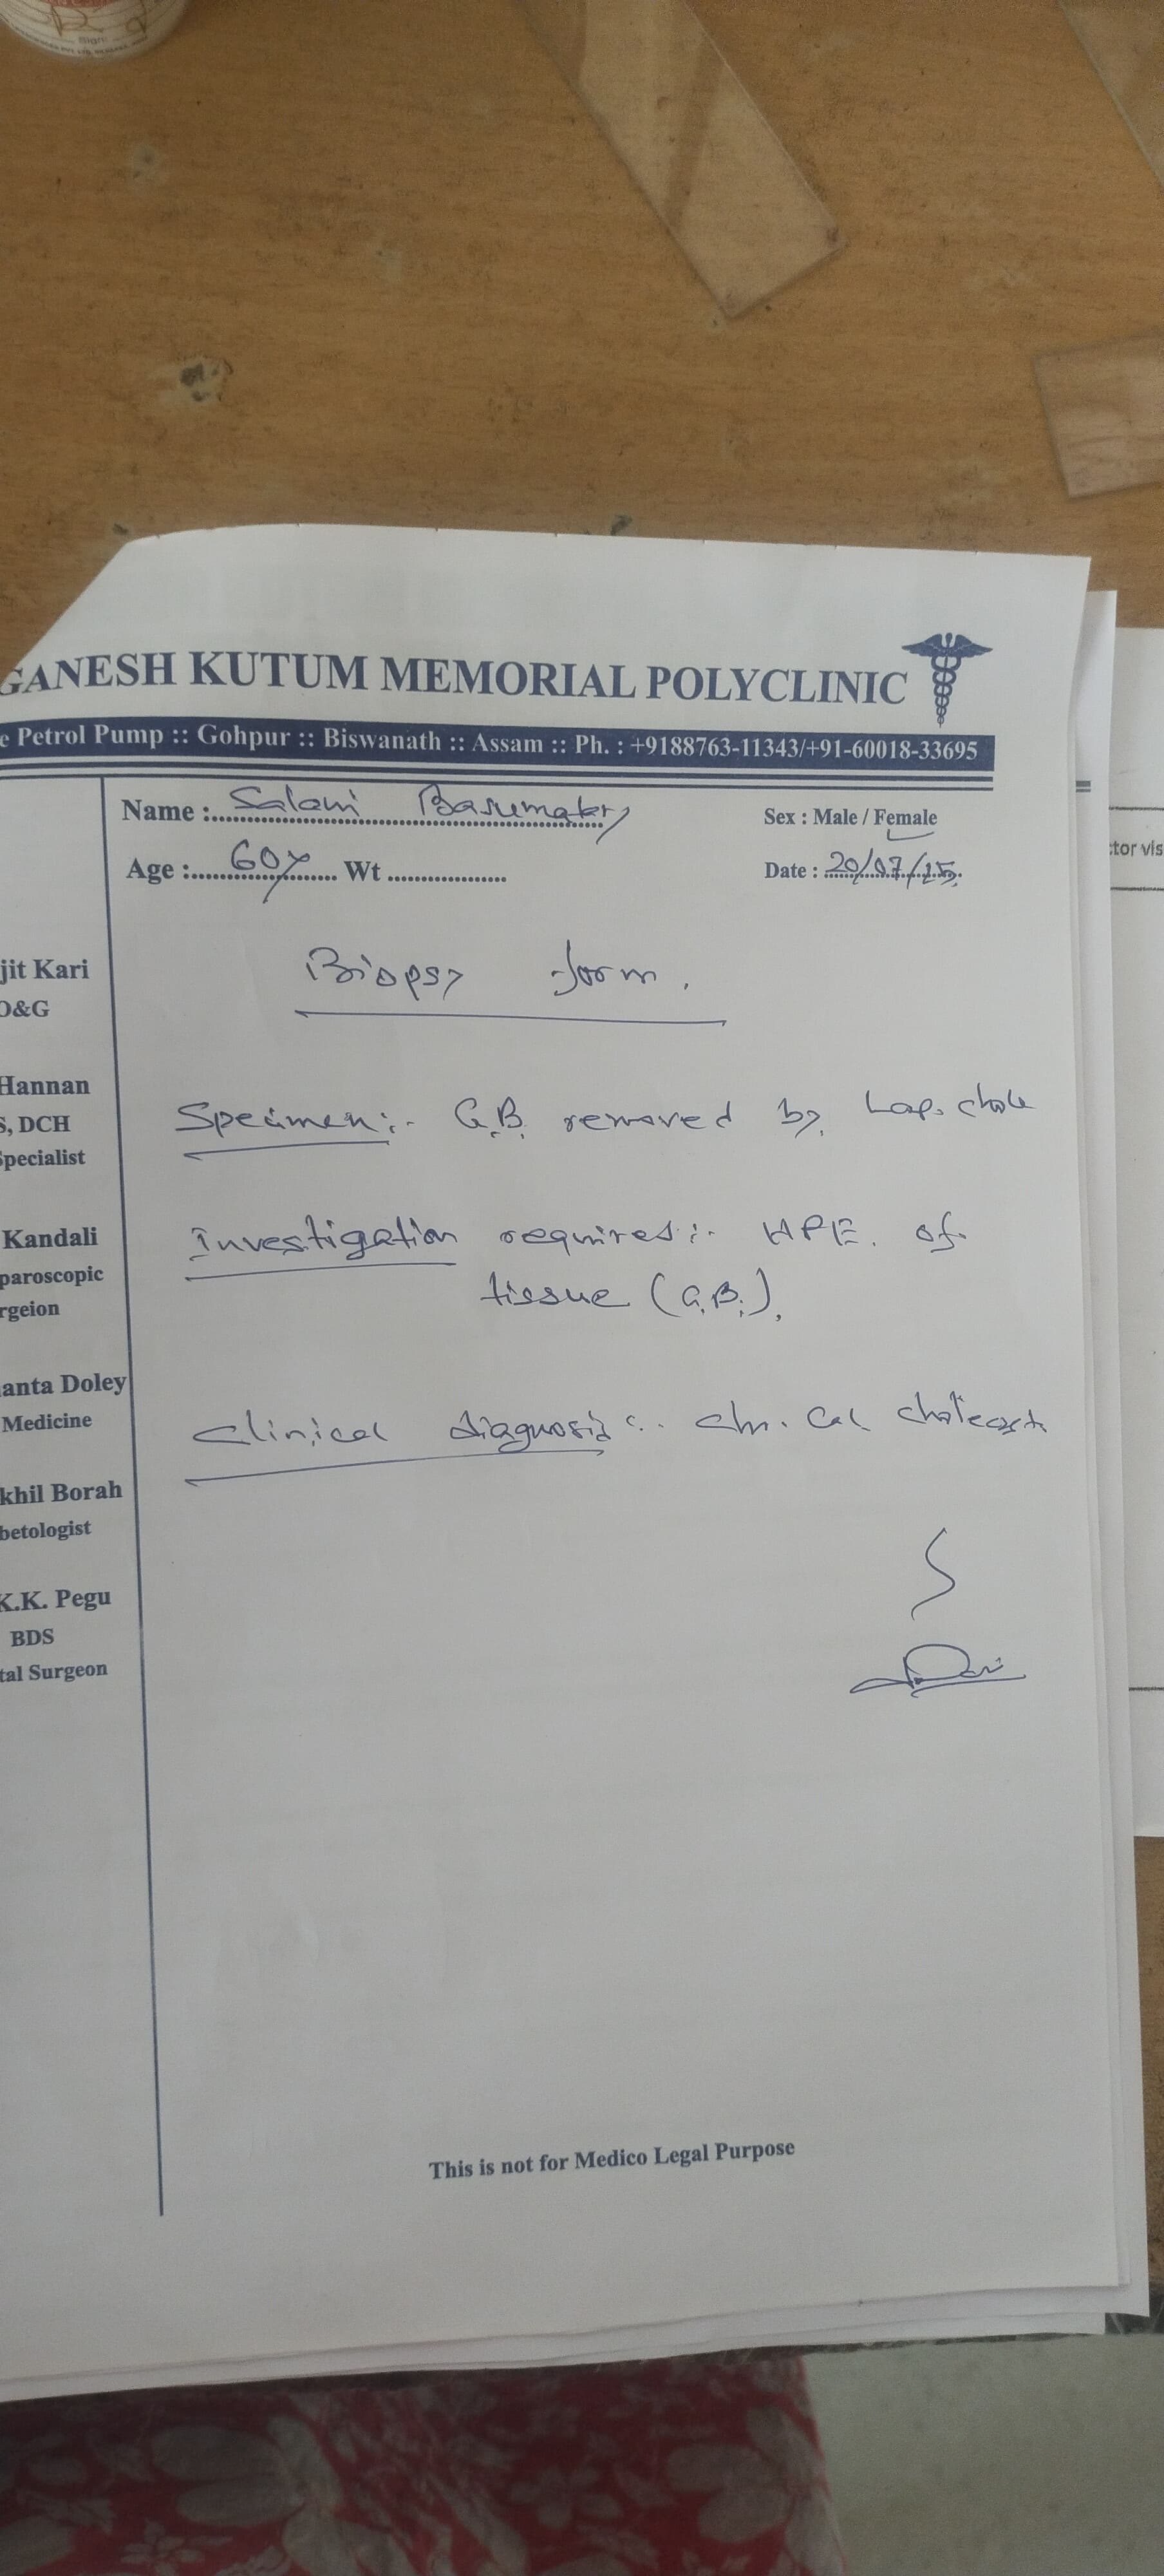 GANESH KUTUM MEMORIAL POLYCLINIC
e Petrol Pump :: Gohpur :: Biswanath :: Assam :: Ph. : +9188763-11343/+91-60018-33695
Name : Salani Basumatary
Sex : Male / Female
Age : 60y Wt
Date : 20/07/25
ctor vis
Biopsy form.
jit Kari
O&G
Hannan
S, DCH
Specialist
Specimen:- G.B. removed by Lap. chole
Kandali
paroscopic
rgeion
Investigation requires:- HPE. of
tissue (G.B.).
anta Doley
Medicine
Clinical diagnosis:- chr. Cal
khil Borah
betologist
K.K. Pegu
BDS
tal Surgeon
This is not for Medico Legal Purpose